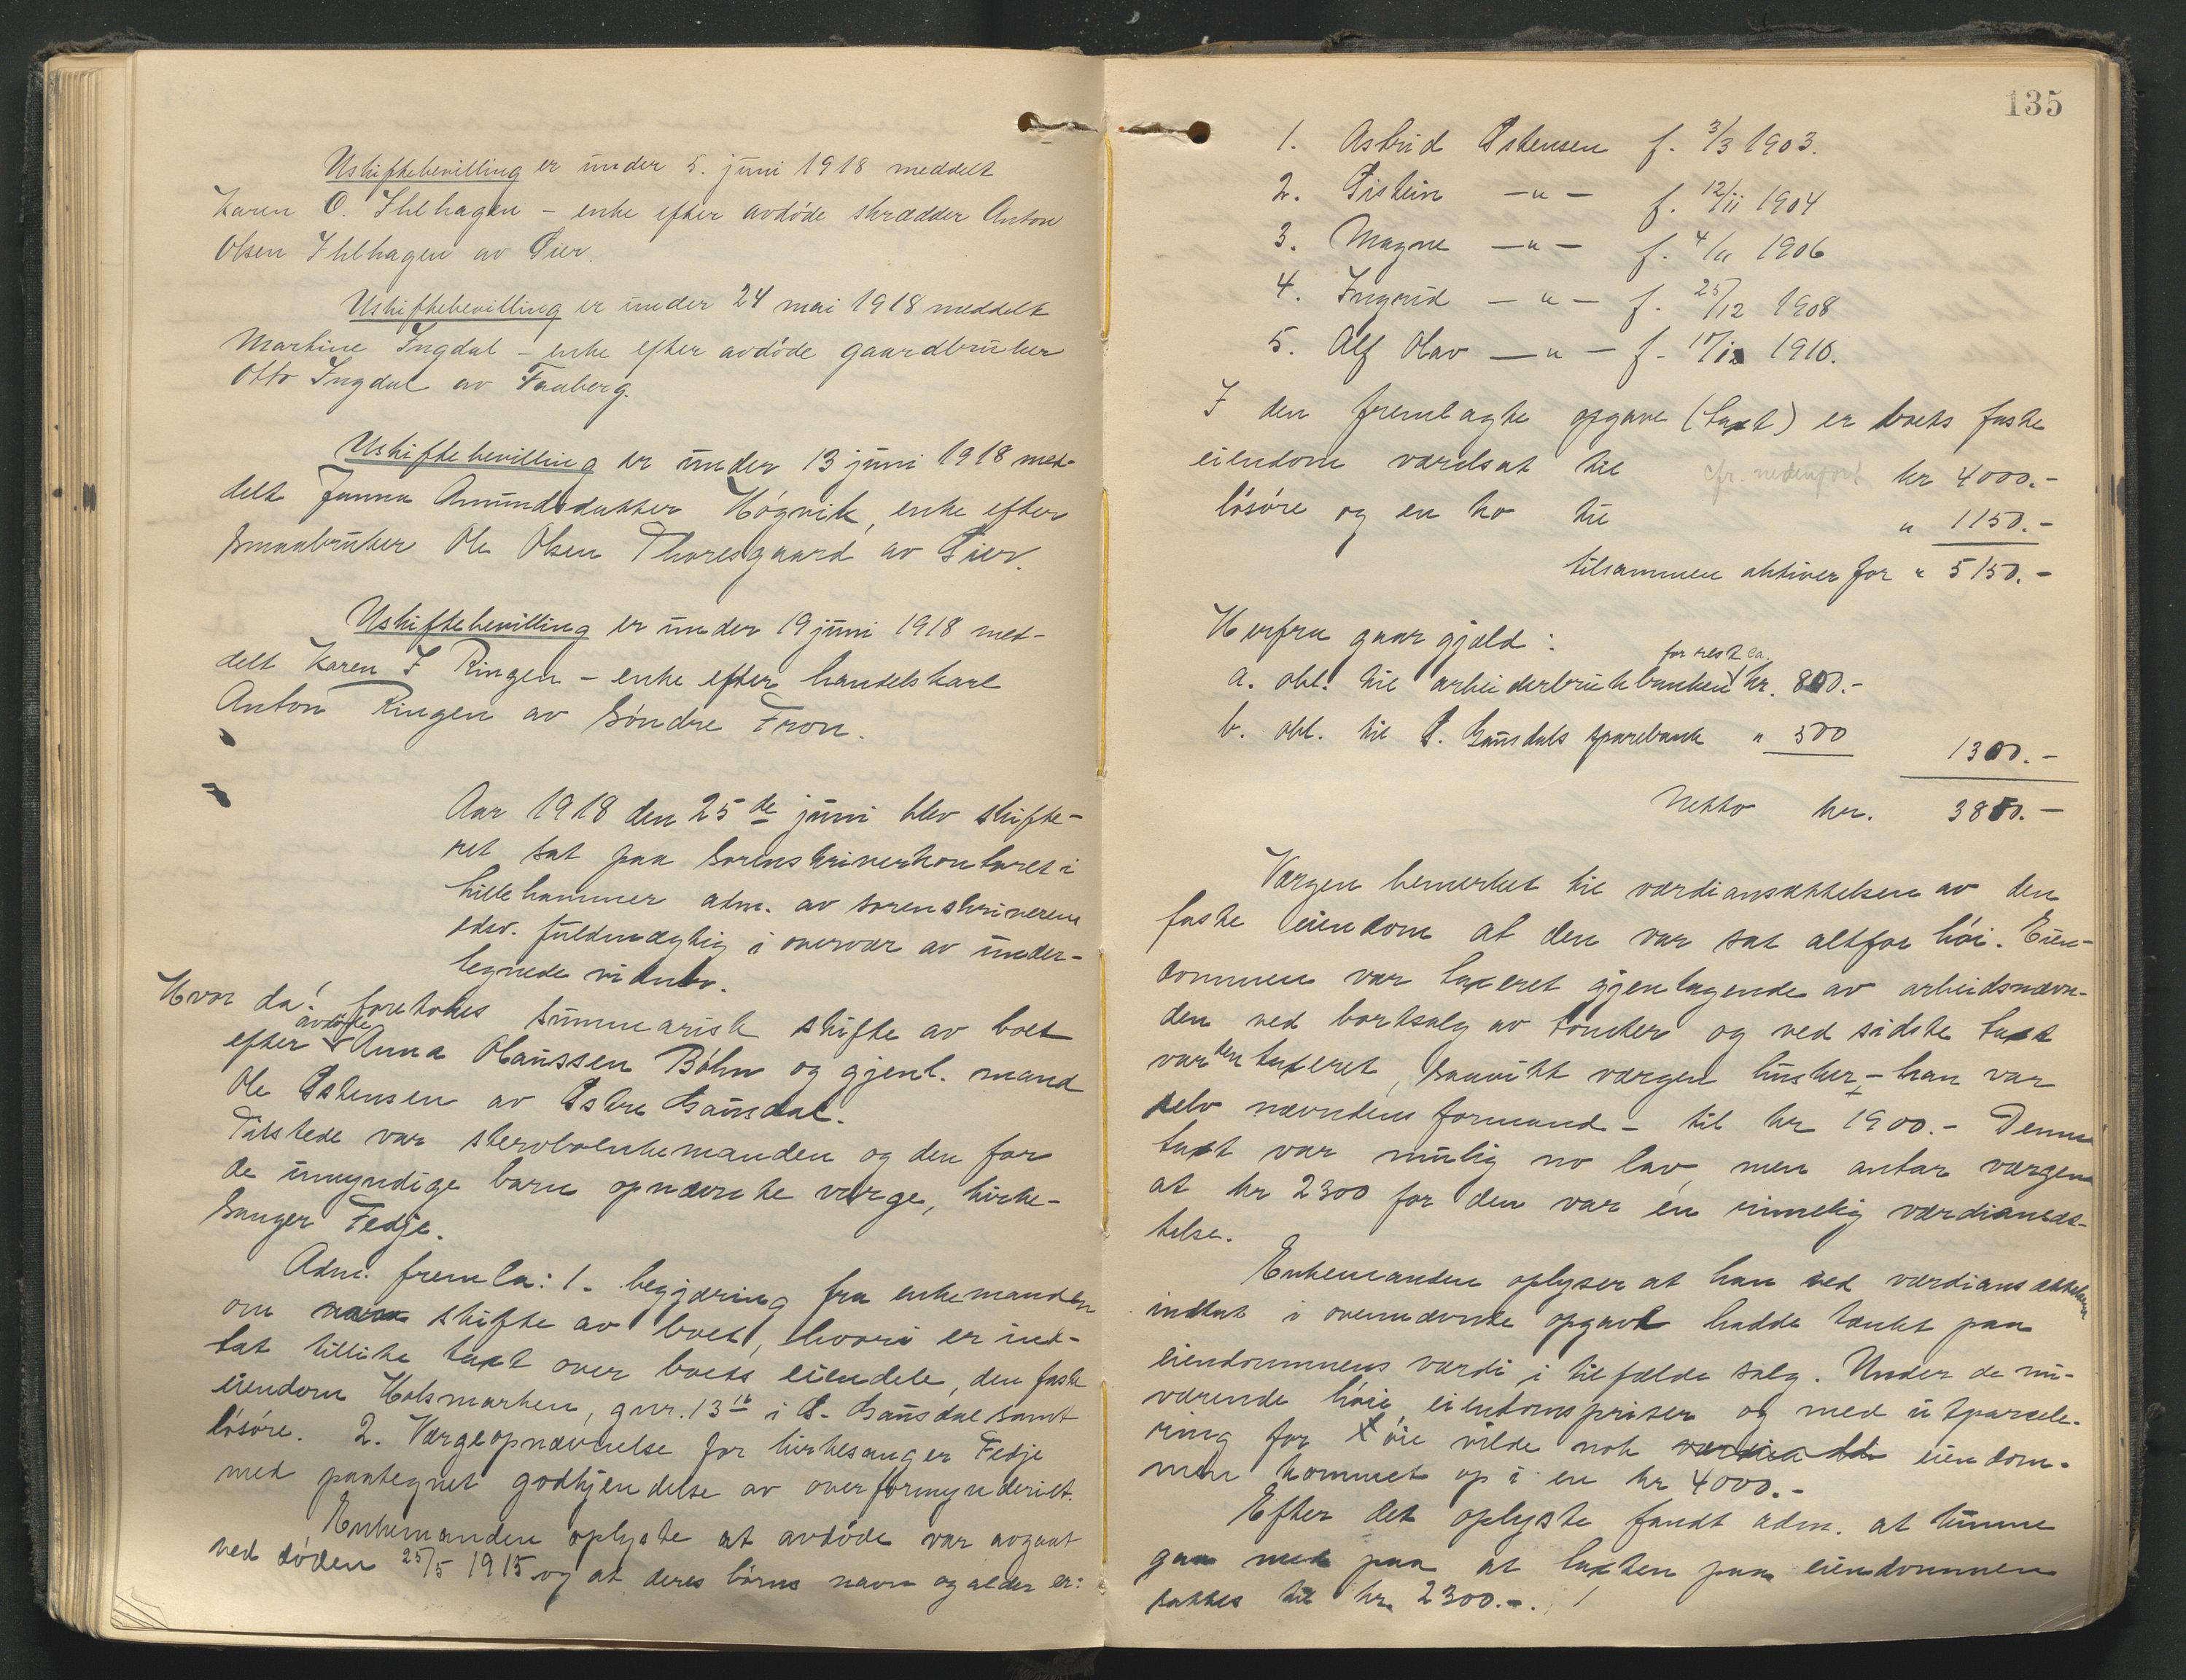 Uskiftebevilling er under 5. juni 1918 meddelt
Karen O. Ihlhagen - enke efter avdøde skrædder Anton
Olsen Ihlhagen av Øier.
Uskiftebevilling er under 24 mai 1918 meddelt
Martine Ingdal - enke efter avdøde gaardbruker
Otto Ingdal av Faaberg.
Uskiftebevilling er under 13 juni 1918 med-
delt Janna Amundsdatter Høgvik, enke efter
smaabruker Ole Olsen Thoresgaard av Øier.
Uskiftebevilling er under 19 juni 1918 med-
delt Karen F Ringen - enke efter handelskarl
Anton Ringen av Søndre Fron.
Aar 1918 den 25de juni blev skifte-
ret sat paa sorenskriverkontoret i
Lillehammer adm. av sorenskriverens
edsv. fuldmægtig i overvær av under-
tegnede vidner.
Hvor da! foretokes summarisk skifte av boet
efter avdøde Anna Olaussen Bøhn og gjenl. mand
Ole Østensen av Østre Gausdal.
Tilstede var stervboenkemanden og den for
de umyndige barn opnævnte verge, kirke-
sanger Fedje.
Adm. fremla: 1. begjæring fra enkemanden
om skifte av boet, hvori er ind-
tat tillike taxt over boets eiendele, den faste
eiendom Holsmarken, gnr. 13 16 i Ø. Gausdal samt
løsøre. 2. Værgeopnævnelse for kirkesanger Fedje
med paategnet godkjendelse av overformynderiet.
Enkemanden oplyste at avdøde var avgaat
ved døden 25/5 1915 og at deres børns navn og alder er:
135
1. Astrid Østensen f. 3/3 1903.
2. Øistein -"- f. 12/11 1904
3. Magne -"- f. 4/11 1906
4. Ingrid -"- f. 25/12 1908
5. Alf Olav -"- f. 1910.
I den fremlagte opgave (taxt) er boets faste
eiendom værdsat til cfr. nedenfor! kr 4000.-
løsøre og en ko til " 1150.-
tilsammen aktiver for " 5150.-
Herfra gaar gjæld:
for rest ca.
a. obl. til arbeiderbrukbanken kr. 800.-
b. obl. til Ø. Gausdals sparebank " 500 1300.-
Netto kr. 3850.-
Værgen bemerket til værdiansættelsen av den
faste eiendom at den var sat altfor høi. Eien-
dommen var taxeret gjentagende av arbeidsnævn-
den ved bortsalg av tomter og ved sidste taxt
var den taxeret, saavidt værgen husker - han var
selv nævndens formand - til kr 1900.- Denne
taxt var mulig no lav, men antar værgen
at kr 2300 for den var en rimelig værdiansæt-
telse.
Enkemanden oplyser at han ved værdiansættelsen
indtat i ovennævnte opgave hadde tænkt paa
eiendommens værdi i tilfælde salg. Under de nu-
værende høie eiendomspriser og med utparcele-
ring for øie vilde nok eiendom-
men kommet op i en kr 4000.-
Efter det oplyste fandt adm. at kunne
gaa med paa at taxten paa eiendommen
sattes til kr. 2300.-.